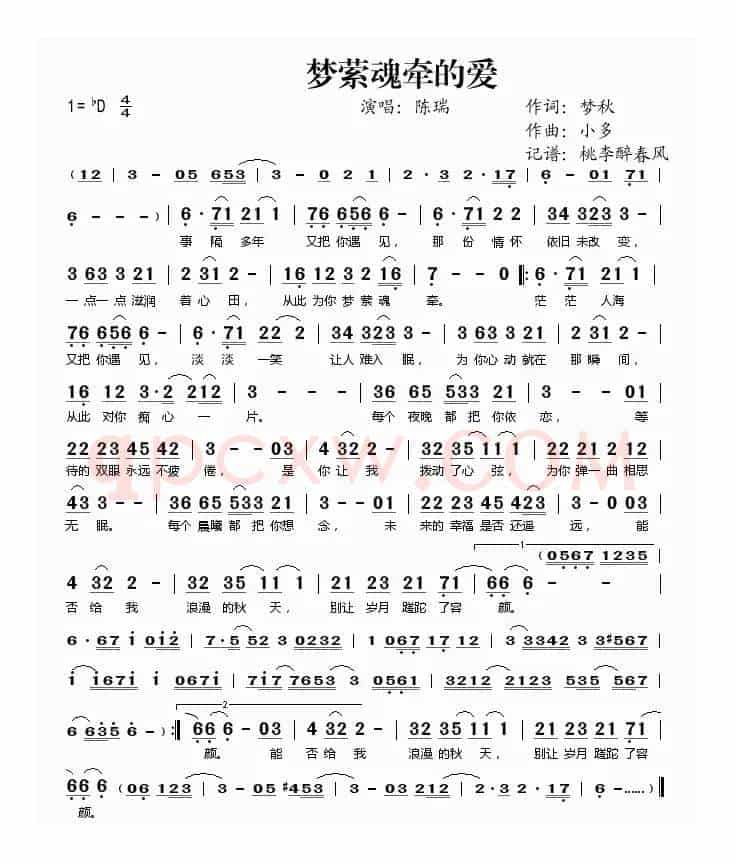 梦萦魂牵的爱
1=♭D 4/4 演唱：陈瑞 作词：梦秋
作曲：小多
记谱：桃李醉春风
(12 | 3 - 05 653 | 3 - 0 2 1 | 2·3 2·17 | 6 - 01 71 |
6 - -) | 6·71 21 1 | 76 656 6 - | 6·71 2 2 | 34 323 3 - |
事隔多年 又把你遇见， 那份情怀 依旧未改变，
3 63 3 21 | 2 31 2 - | 16 12 3 2 16 | 7 - - 0 |: 6·71 21 |
一点一点滋润 着心田， 从此为你梦萦魂 牵。 茫茫人海
76 656 6 - | 6·71 22 2 | 34 323 3 - | 3 63 3 21 | 2 31 2 - |
又把你遇见， 淡淡一笑 让人难入眠， 为你心动就在 那瞬间，
16 12 3·2 212 | 3 - - - | 36 65 533 21 | 3 - - 01 |
从此对你痴心一 片。 每个夜晚都把你依 恋， 等
22 23 45 42 | 3 - - 03 | 4 32 2 - | 32 35 1 1 - | 22 21 2 12 |
待的双眼永远不疲 倦， 是 你让我 拨动了心弦， 为你弹一曲相思
qpcxw.COM
43 3 - - | 36 65 533 21 | 3 - - 01 | 22 23 45 423 | 3 - 0 03 |
无眠。 每个晨曦都把你想 念， 未 来的幸福是否还遥 远， 能
1
4 32 2 - | 32 35 1 1 1 | 21 23 21 71 | 66 6 - - (0567 1235 |
否给我 浪漫的秋天， 别让岁月蹉跎了容 颜。
6·67 i 0i2 | 7·5 52 3 0232 | 1 067 17 12 | 3 3342 3 3#567 |
i i671 i 0671 | 7i7 7653 3 0561 | 3212 2123 535 567 |
2
6 635 6 -) :| 66 6 - 03 | 4 32 2 - | 32 35 1 1 1 | 21 23 21 71 |
颜。 能 否给我 浪漫的秋天， 别让岁月蹉跎了容
66 6 (06 123 | 3 - 05 #453 | 3 - 03 212 | 2·32·17 | 6 -……) ||
颜。